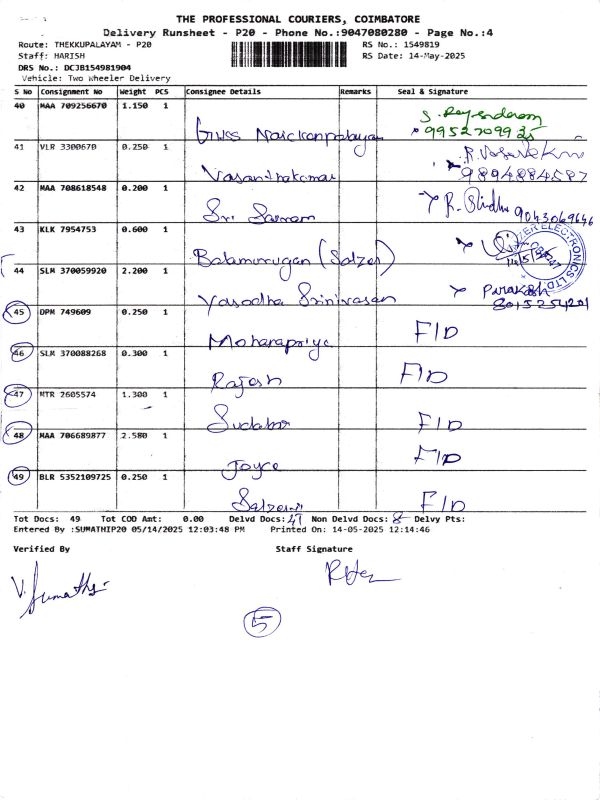 THE PROFESSIONAL COURIERS, COIMBATORE
Delivery Runsheet - P20 - Phone No.:9047080280 - Page No.:4
Route: THEKKUPALAYAM - P20 RS No.: 1549819
Staff: HARISH RS Date: 14-May-2025
DRS No.: DCJB154981904
Vehicle: Two Wheeler Delivery
S No Consignment No Weight PCS Consignee Details Remarks Seal & Signature
40 MAA 709256670 1.150 1
41 VLR 3300670 0.250 1 Vasanthakumar
42 MAA 708618548 0.200 1 Sri Sairam R. Sindhu
43 KLK 7954753 0.600 1 Balamurugan (Salzer)
44 SLM 370059920 2.200 1 Yasodha Srinivasan Parakash
8015254201
45 DPM 749609 0.250 1 Moharapriya F/D
46 SLM 370088268 0.300 1 Rajesh F/D
47 MTR 2605574 1.300 1 F/D
48 MAA 706689877 2.580 1 Joyce F/D
49 BLR 5352109725 0.250 1 F/D
Tot Docs: 49 Tot COD Amt: 0.00 Delvd Docs: 41 Non Delvd Docs: 8 Delvy Pts:
Entered By :SUMATHIP20 05/14/2025 12:03:48 PM Printed On: 14-05-2025 12:14:46
Verified By Staff Signature
V. Sumathi
5